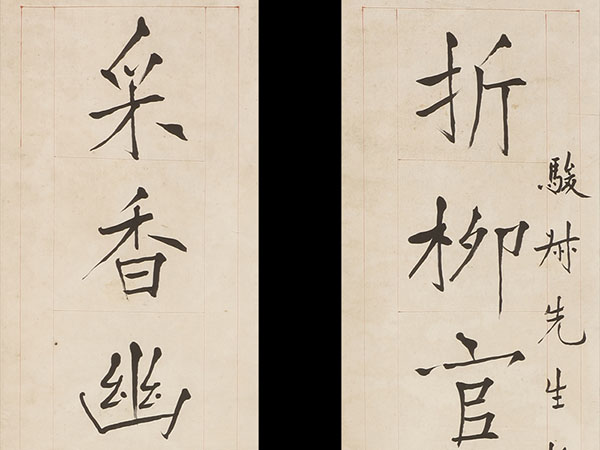 折柳官
駿
先生
采香幽